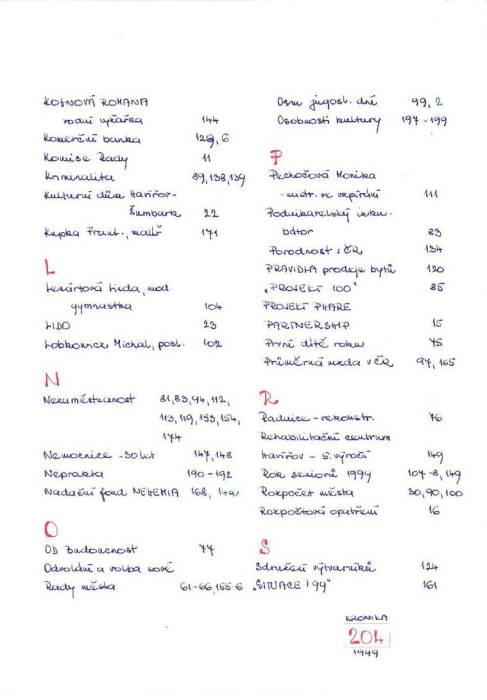 KOTNOVÁ ROMANA
144
Komerční banka 129, 6
Komise Rady 11
Kriminalita 89, 138, 139
Kulturní dům Havířov-
Šumbark 22
Kupka Frant., malíř 171
L
Lenártová Linda, mod.
gymnastka 104
LIDO 23
Lobkowicz Michal, posl. 102
N
Nezaměstnanost 81, 83, 94, 112,
113, 119, 153, 154,
174
Nemocnice - 30 let 147, 148
Neprakta 190-192
Nadační fond NEHEMIA 168,
O
OD Budoucnost 77
Odvolání a volba nové
Rady města 61-66, 165-6
Osm jugosl. dní 99, 2
Osobnosti kultury 197-199
P
Pechošová Monika
- mistr. ve vzpírání 111
Podnikatelský inku-
bátor 23
Porodnost v ČR 134
PRAVIDLA prodeje bytů 120
„PROJEKT 100" 85
PROJEKT PHARE
PARTNERSHIP 15
První dítě roku 75
Průměrná mzda v ČR 97, 165
R
Radnice - rekonstr. 76
Rehabilitační centrum
Havířov - 5. výročí 149
Rok seniorů 1999 107-8, 149
Rozpočet města 30, 90, 100
Rozpočtová opatření 16
S
Sdružení výtvarníků 124
„SITUACE '99" 161
KRONIKA
204
1999